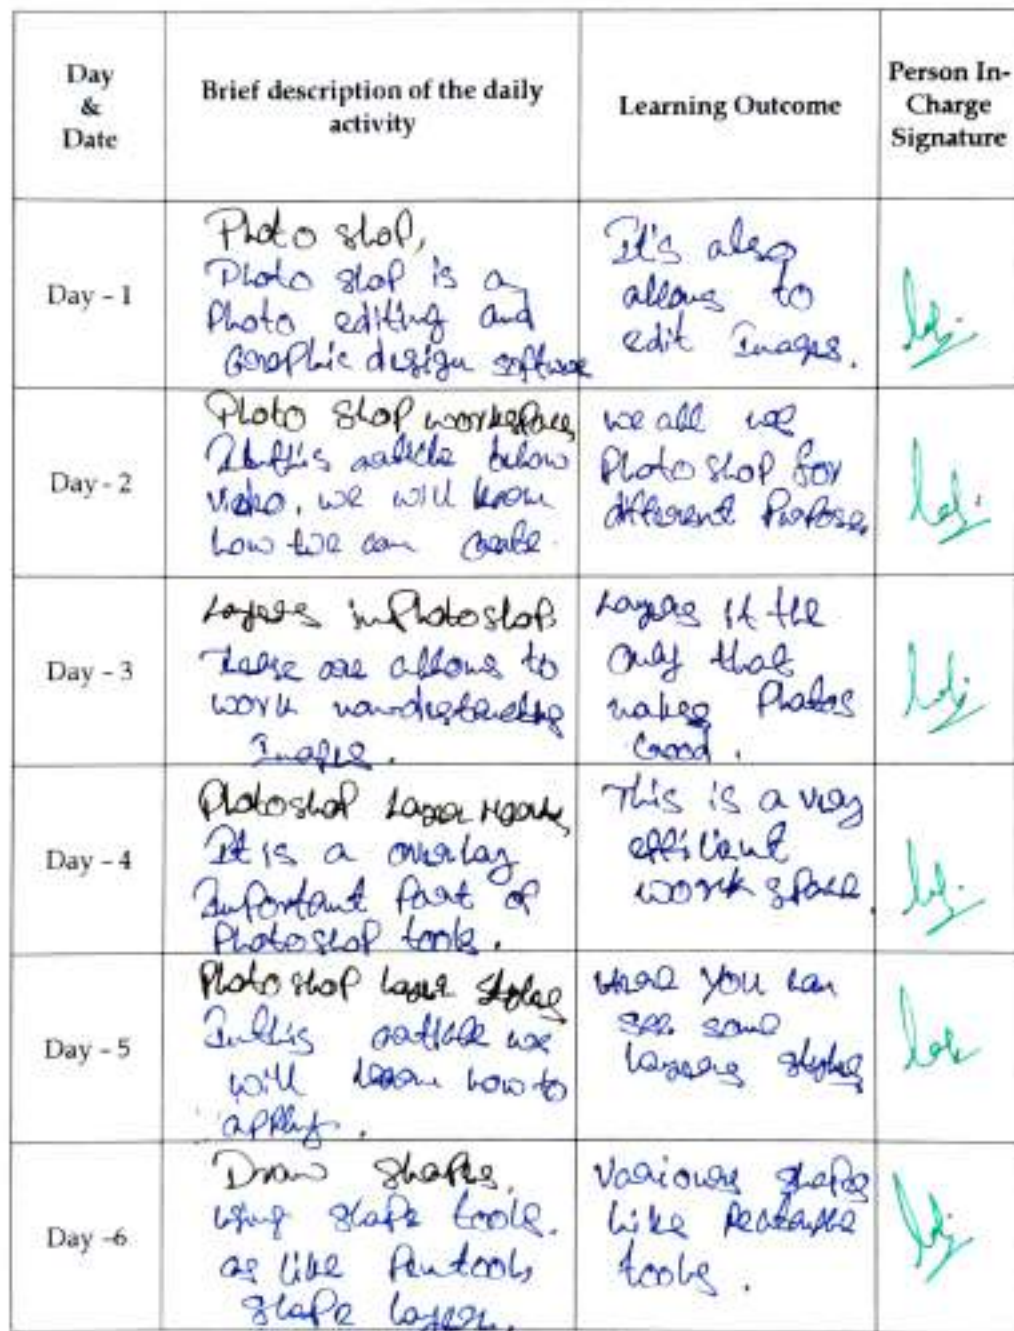 Day
&
Date
Brief description of the daily
activity
Learning Outcome
Person In-
Charge
Signature
Day - 1
Photo shop,
Photo shop is a
Photo editing and
Graphic design software
It's also
allows to
edit Images.
Day - 2
Photo shop workspace
In this article below
video, we will know
how we can create.
we all use
Photo shop for
different Purpose.
Day - 3
Layers in Photoshop
These are allows to
work nondestructive
Images.
Layers it the
only that
makes Photos
Good.
Day - 4
Photoshop Layer
It is a overlay
Important Part of
Photoshop tools.
This is a very
efficient
work space.
Day - 5
Photo shop layer styles
In this article we
will learn how to
apply.
Here You can
see some
Layers styles
Day -6
Draw shapes,
using shape tools.
as like Pentools,
shape layer.
Various shapes
Like Rectangle
tools.